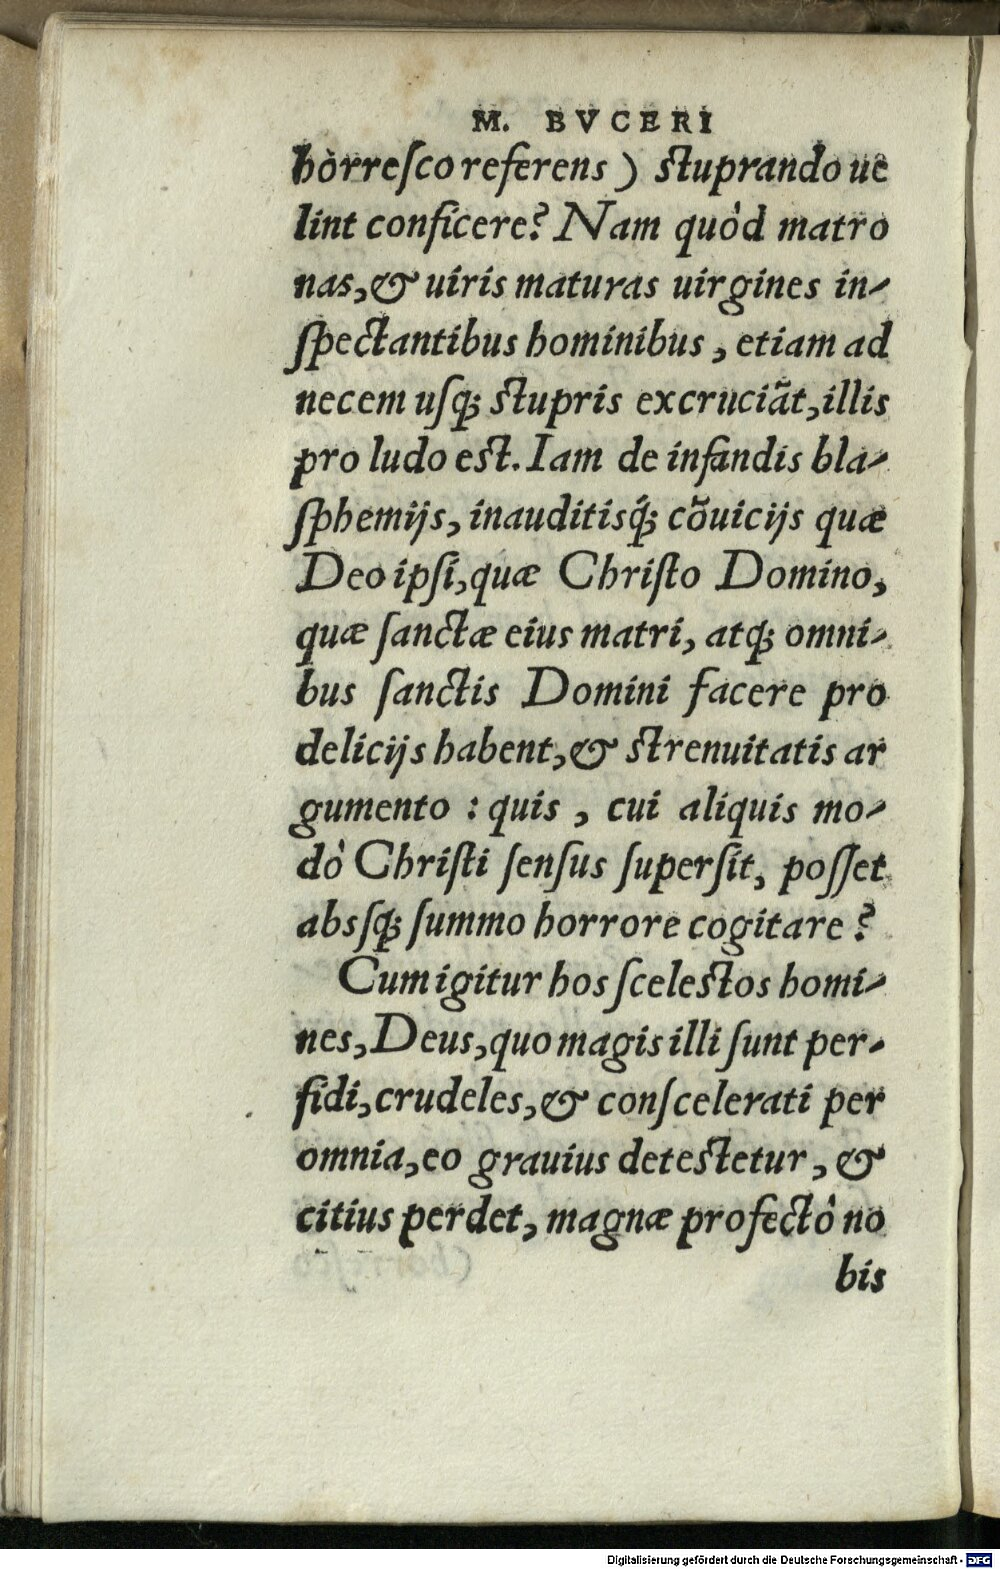 M. BVCERI
horreſco referens) ſtuprando ue
lint conficere? Nam quòd matro
nas, & uiris maturas uirgines in-
ſpectantibus hominibus, etiam ad
necem uſq; ſtupris excruciãt, illis
pro ludo eſt. Iam de infandis bla-
ſphemijs, inauditisq́; cõuicijs quæ
Deo ipſi, quæ Chriſto Domino,
quæ ſanctæ eius matri, atq; omni-
bus ſanctis Domini facere pro
delicijs habent, & ſtrenuitatis ar
gumento : quis, cui aliquis mo-
dò Chriſti ſenſus ſuperſit, poſſet
absſq; ſummo horrore cogitare?
Cum igitur hos ſceleſtos homi-
nes, Deus, quo magis illi ſunt per-
fidi, crudeles, & conſcelerati per
omnia, eo grauius deteſtetur, &
citius perdet, magnæ profectò no
bis
Digitalisierung gefördert durch die Deutsche Forschungsgemeinschaft - DFG